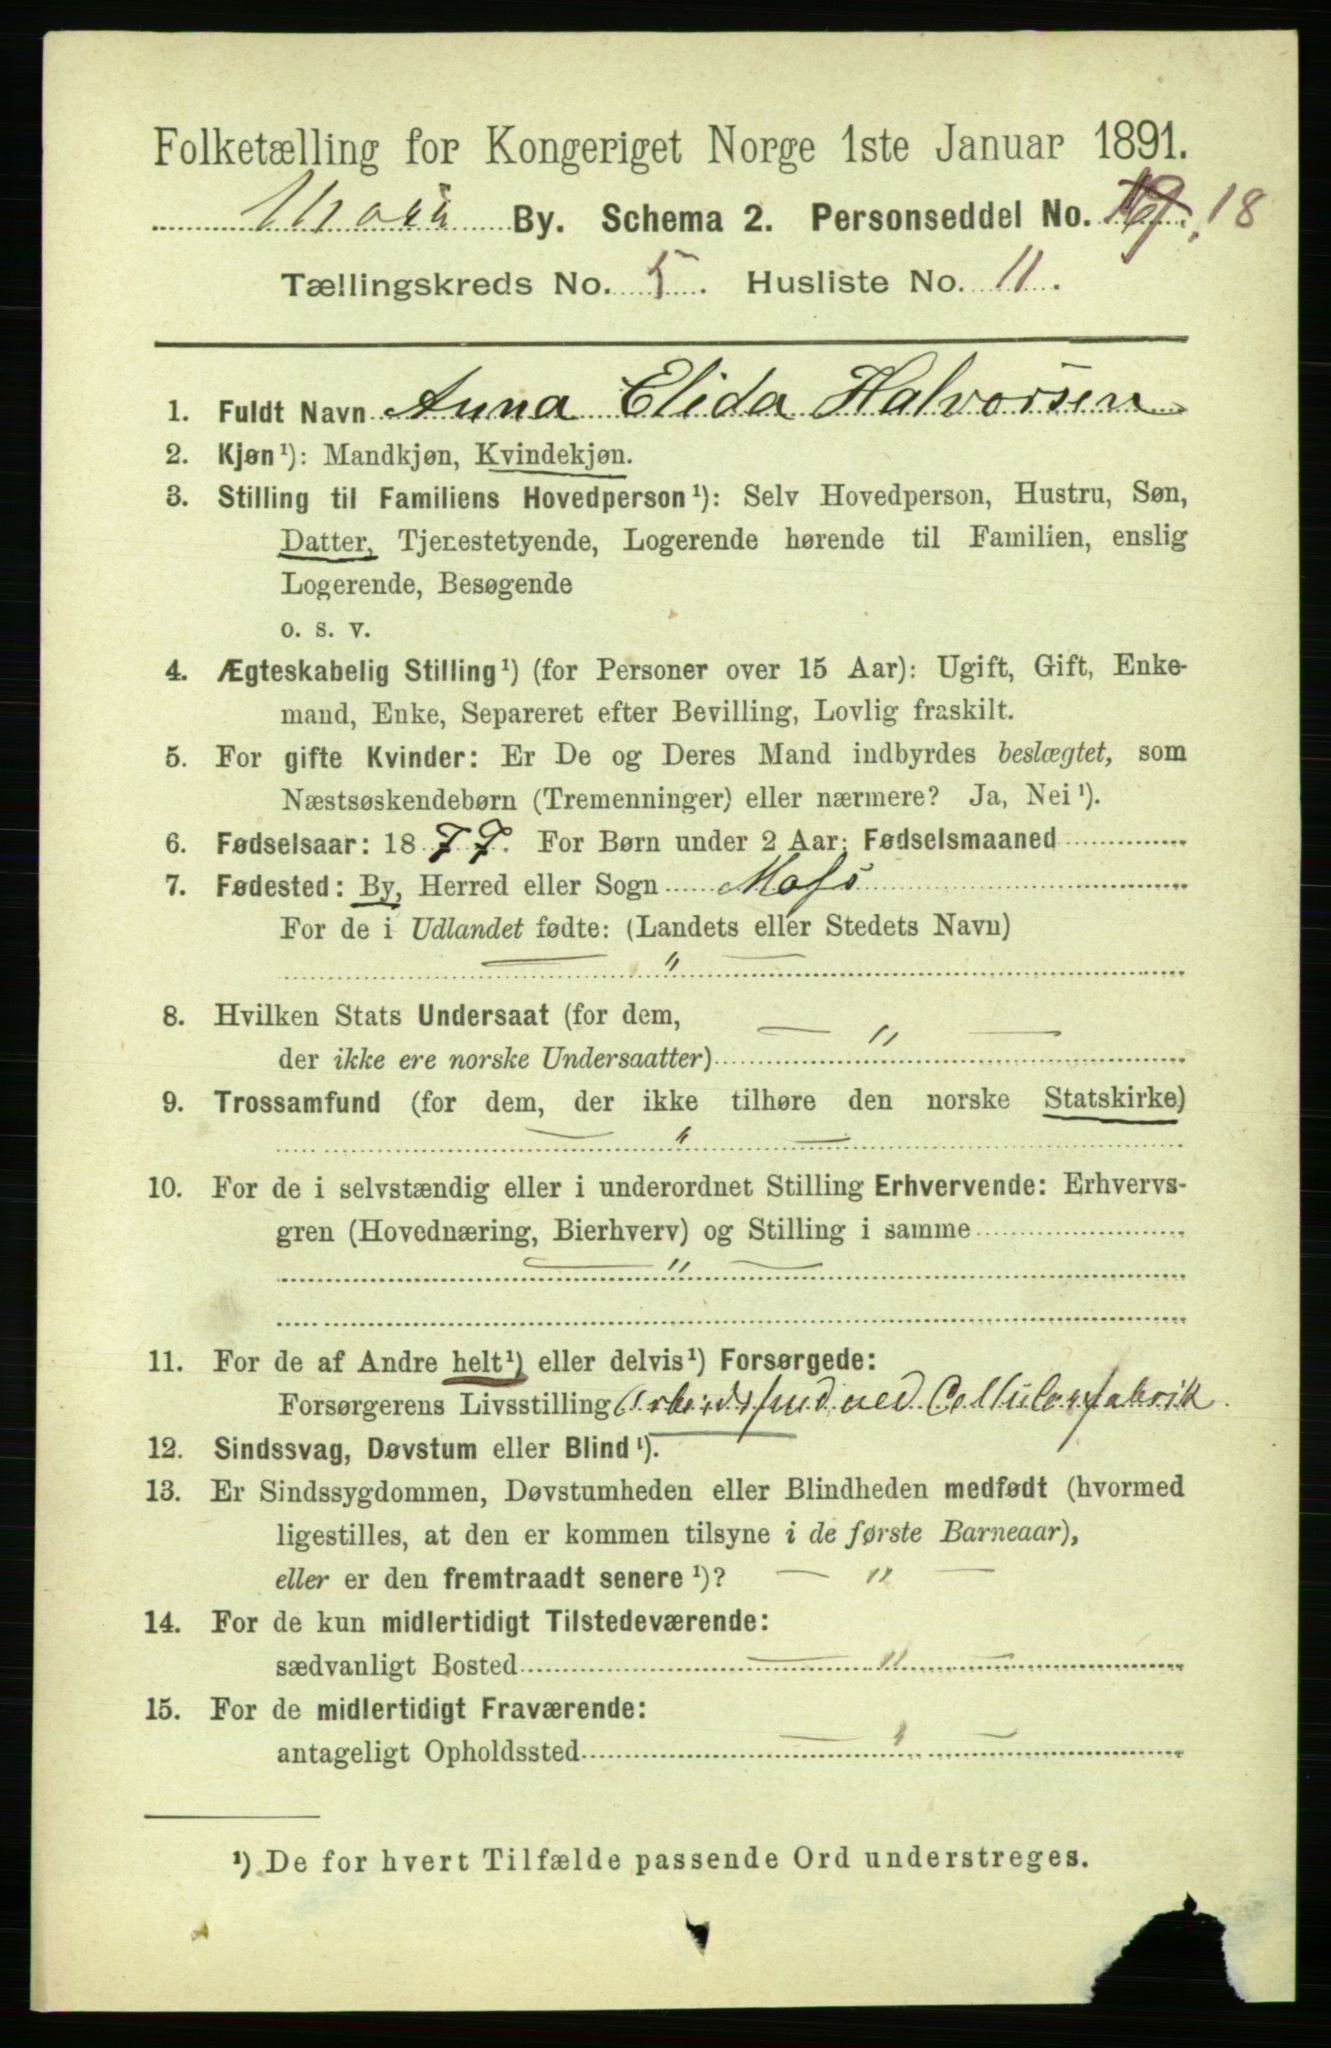 Folketælling for Kongeriget Norge 1ste Januar 1891.
Moss By. Schema 2. Personseddel No. 18
Tællingskreds No. 5. Husliste No. 11.
1. Fuldt Navn Anna Elida Halvorsen
2. Kjøn¹): Mandkjøn, Kvindekjøn.
3. Stilling til Familiens Hovedperson¹): Selv Hovedperson, Hustru, Søn,
Datter, Tjenestetyende, Logerende hørende til Familien, enslig
Logerende, Besøgende
o. s. v.
4. Ægteskabelig Stilling¹) (for Personer over 15 Aar): Ugift, Gift, Enke-
mand, Enke, Separeret efter Bevilling, Lovlig fraskilt.
5. For gifte Kvinder: Er De og Deres Mand indbyrdes beslægtet, som
Næstsøskendebørn (Tremenninger) eller nærmere? Ja, Nei¹).
6. Fødselsaar: 1877. For Børn under 2 Aar: Fødselsmaaned
7. Fødested: By, Herred eller Sogn Moss
For de i Udlandet fødte: (Landets eller Stedets Navn)
— " —
8. Hvilken Stats Undersaat (for dem,
der ikke ere norske Undersaatter) — " —
9. Trossamfund (for dem, der ikke tilhøre den norske Statskirke)
— " —
10. For de i selvstændig eller i underordnet Stilling Erhvervende: Erhvervs-
gren (Hovednæring, Bierhverv) og Stilling i samme
— " —
11. For de af Andre helt¹) eller delvis¹) Forsørgede:
Forsørgerens Livsstilling ved Cellulosefabrik
12. Sindssvag, Døvstum eller Blind¹).
13. Er Sindssygdommen, Døvstumheden eller Blindheden medfødt (hvormed
ligestilles, at den er kommen tilsyne i de første Barneaar),
eller er den fremtraadt senere¹)? — " —
14. For de kun midlertidigt Tilstedeværende:
sædvanligt Bosted — " —
15. For de midlertidigt Fraværende:
antageligt Opholdssted — " —
¹) De for hvert Tilfælde passende Ord understreges.